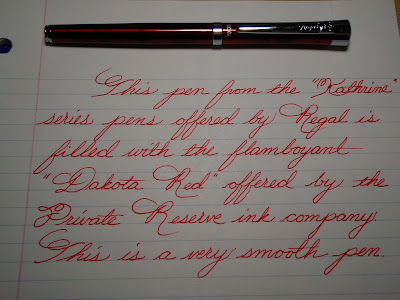 This pen from the "Kathrine"
series pens offered by Regal is
filled with the flamboyant
"Dakota Red" offered by the
Private Reserve ink company.
This is a very smooth pen.